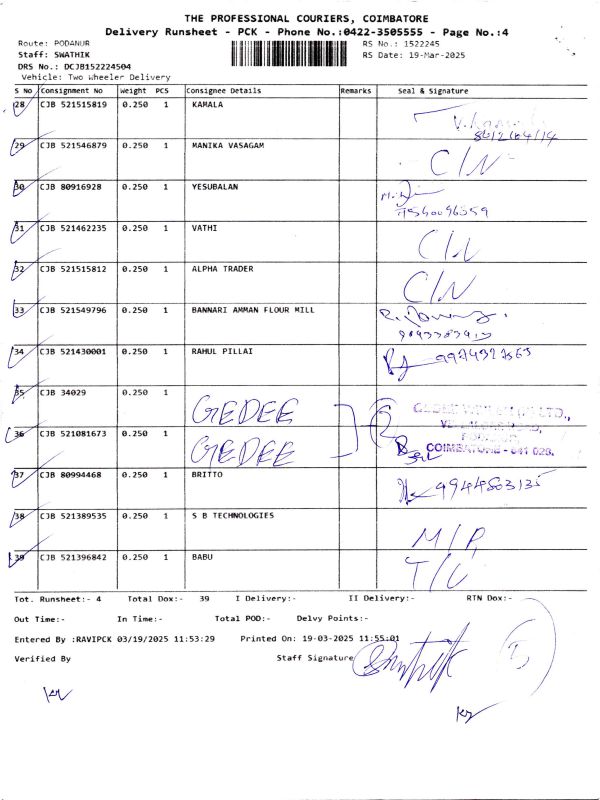 THE PROFESSIONAL COURIERS, COIMBATORE
Delivery Runsheet - PCK - Phone No.:0422-3505555 - Page No.:4
Route: PODANUR RS No.: 1522245
Staff: SWATHIK RS Date: 19-Mar-2025
DRS No.: DCJB152224504
Vehicle: Two Wheeler Delivery
S No Consignment No Weight PCS Consignee Details Remarks Seal & Signature
28 CJB 521515819 0.250 1 KAMALA
29 CJB 521546879 0.250 1 MANIKA VASAGAM C/N
30 CJB 80916928 0.250 1 YESUBALAN
31 CJB 521462235 0.250 1 VATHI
32 CJB 521515812 0.250 1 ALPHA TRADER C/N
33 CJB 521549796 0.250 1 BANNARI AMMAN FLOUR MILL
34 CJB 521430001 0.250 1 RAHUL PILLAI
35 CJB 34029 0.250 1 GEDEE
36 CJB 521081673 0.250 1 GEDEE
COIMBATORE - 641 023.
37 CJB 80994468 0.250 1 BRITTO 9944803135
38 CJB 521389535 0.250 1 S B TECHNOLOGIES
39 CJB 521396842 0.250 1 BABU
Tot. Runsheet:- 4 Total Dox:- 39 I Delivery:- II Delivery:- RTN Dox:-
Out Time:- In Time:- Total POD:- Delvy Points:-
Entered By :RAVIPCK 03/19/2025 11:53:29 Printed On: 19-03-2025 11:55:01
Verified By Staff Signature